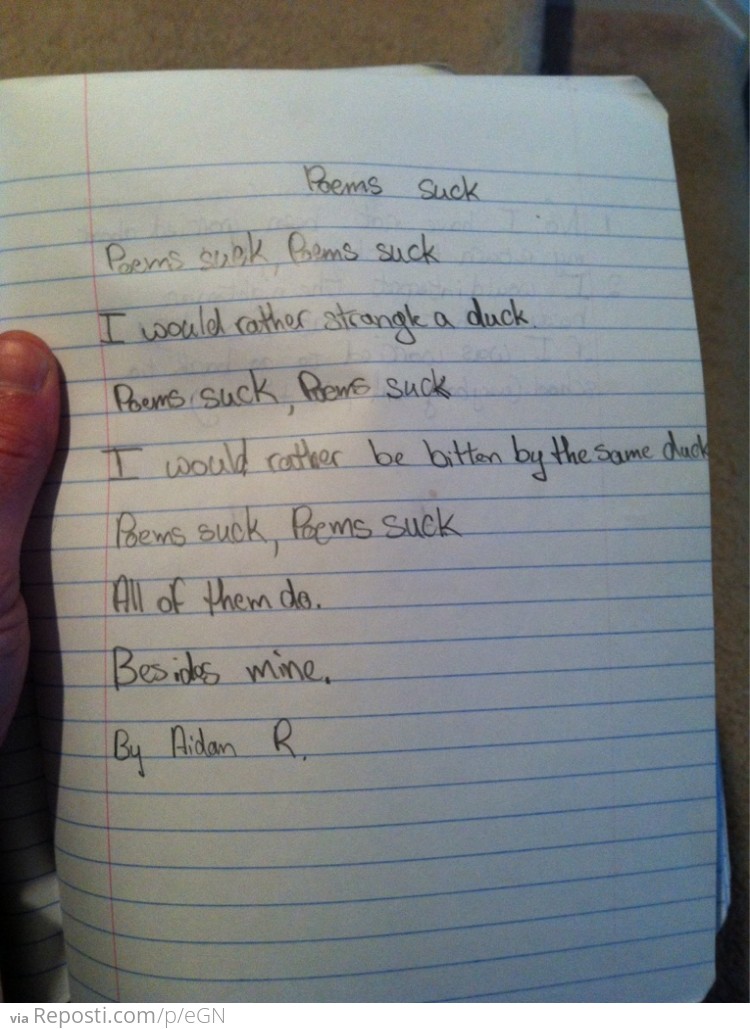 Poems suck
Poems suck, Poems suck
I would rather strangle a duck.
Poems suck, Poems suck
I would rather be bitten by the same duck
Poems suck, Poems suck
All of them do.
Besides mine.
By Aidan R.
via Reposti.com/p/eGN